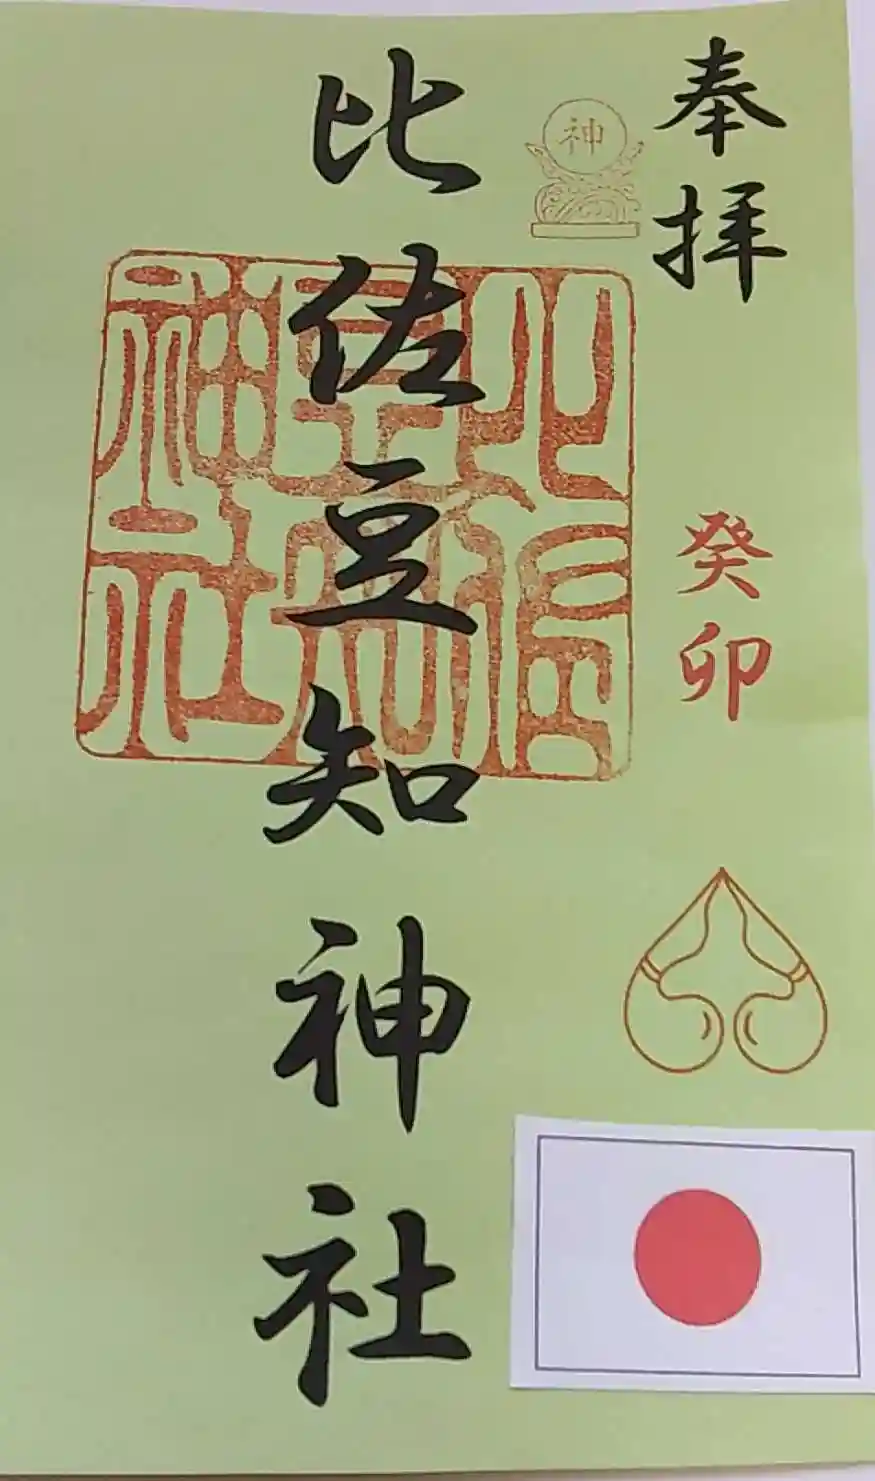 奉拝
癸卯
神
比佐豆知神社
比佐豆知神社